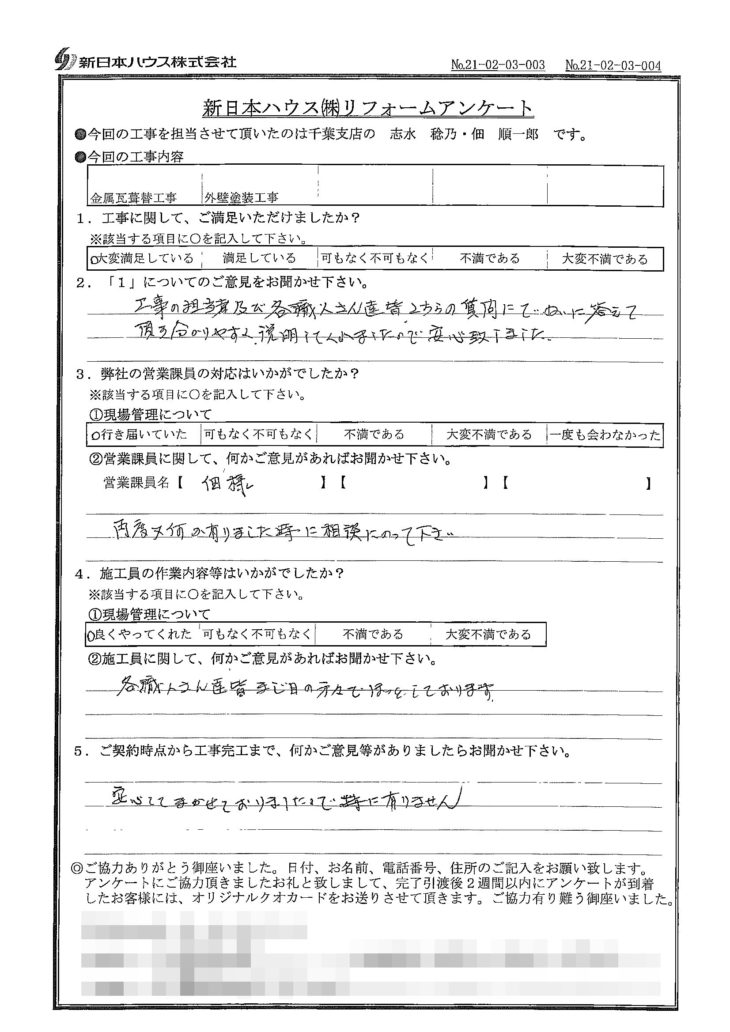 新日本ハウス株式会社
No.21-02-03-003 No.21-02-03-004
新日本ハウス㈱リフォームアンケート
●今回の工事を担当させて頂いたのは千葉支店の 志水 稔乃・佃 順一郎 です。
●今回の工事内容
金属瓦葺替工事 外壁塗装工事
1．工事に関して、ご満足いただけましたか？
※該当する項目に○を記入して下さい。
○大変満足している 満足している 可もなく不可もなく 不満である 大変不満である
2．「1」についてのご意見をお聞かせ下さい。
工事の担当者及び各職人さん達皆こちらの質問にていねいに答えて
頂き分かりやすく説明してくれましたので安心致しました。
3．弊社の営業課員の対応はいかがでしたか？
※該当する項目に○を記入して下さい。
①現場管理について
○行き届いていた 可もなく不可もなく 不満である 大変不満である 一度も会わなかった
②営業課員に関して、何かご意見があればお聞かせ下さい。
営業課員名【 佃様 】【 】【 】
再度又何か有りました時に相談にのって下さい
4．施工員の作業内容等はいかがでしたか？
※該当する項目に○を記入して下さい。
①現場管理について
○良くやってくれた 可もなく不可もなく 不満である 大変不満である
②施工員に関して、何かご意見があればお聞かせ下さい。
各職人さん達皆まじ目の方々でほっとしております。
5．ご契約時点から工事完工まで、何かご意見等がありましたらお聞かせ下さい。
安心してまかせておりましたので特に有りません
◎ご協力ありがとう御座いました。日付、お名前、電話番号、住所のご記入をお願い致します。
アンケートにご協力頂きましたお礼と致しまして、完了引渡後2週間以内にアンケートが到着
したお客様には、オリジナルクオカードをお送りさせて頂きます。ご協力有り難う御座いました。